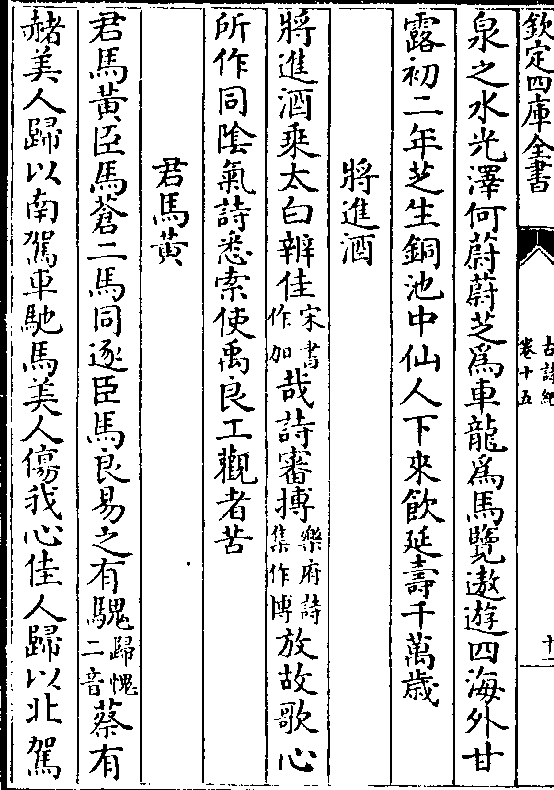 欽定四庫全書
古詩紀
卷十五
泉之水光澤何蔚蔚芝為車龍為馬覽遨遊四海外甘
露初二年芝生銅池中仙人下來飲延壽千萬歲
將進酒
將進酒乘太白辨佳宋書作加哉詩審搏樂府詩集作博放故歌心
所作同陰氣詩悉索使禹良工觀者苦
君馬黃
君馬黃臣馬蒼二馬同逐臣馬良易之有騩歸愧二音蔡有
赭美人歸以南駕車馳馬美人傷我心佳人歸以北駕